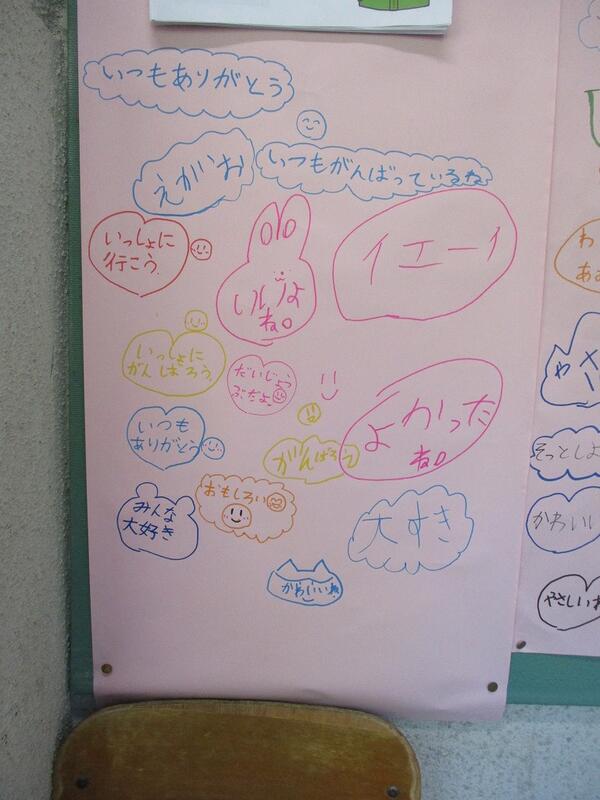 いつもありがとう
えがお
いつもがんばっているね
いっしょに
行こう
いいよ
ね。
イエーイ
いっしょに
がんばろう
だいじょう
ぶだよ。
よかった
ね。
いつも
ありがとう
がんばろう
みんな
大好き
おもしろい
大すき
かわいいね
そっとしよ
かわいい
やさしいね